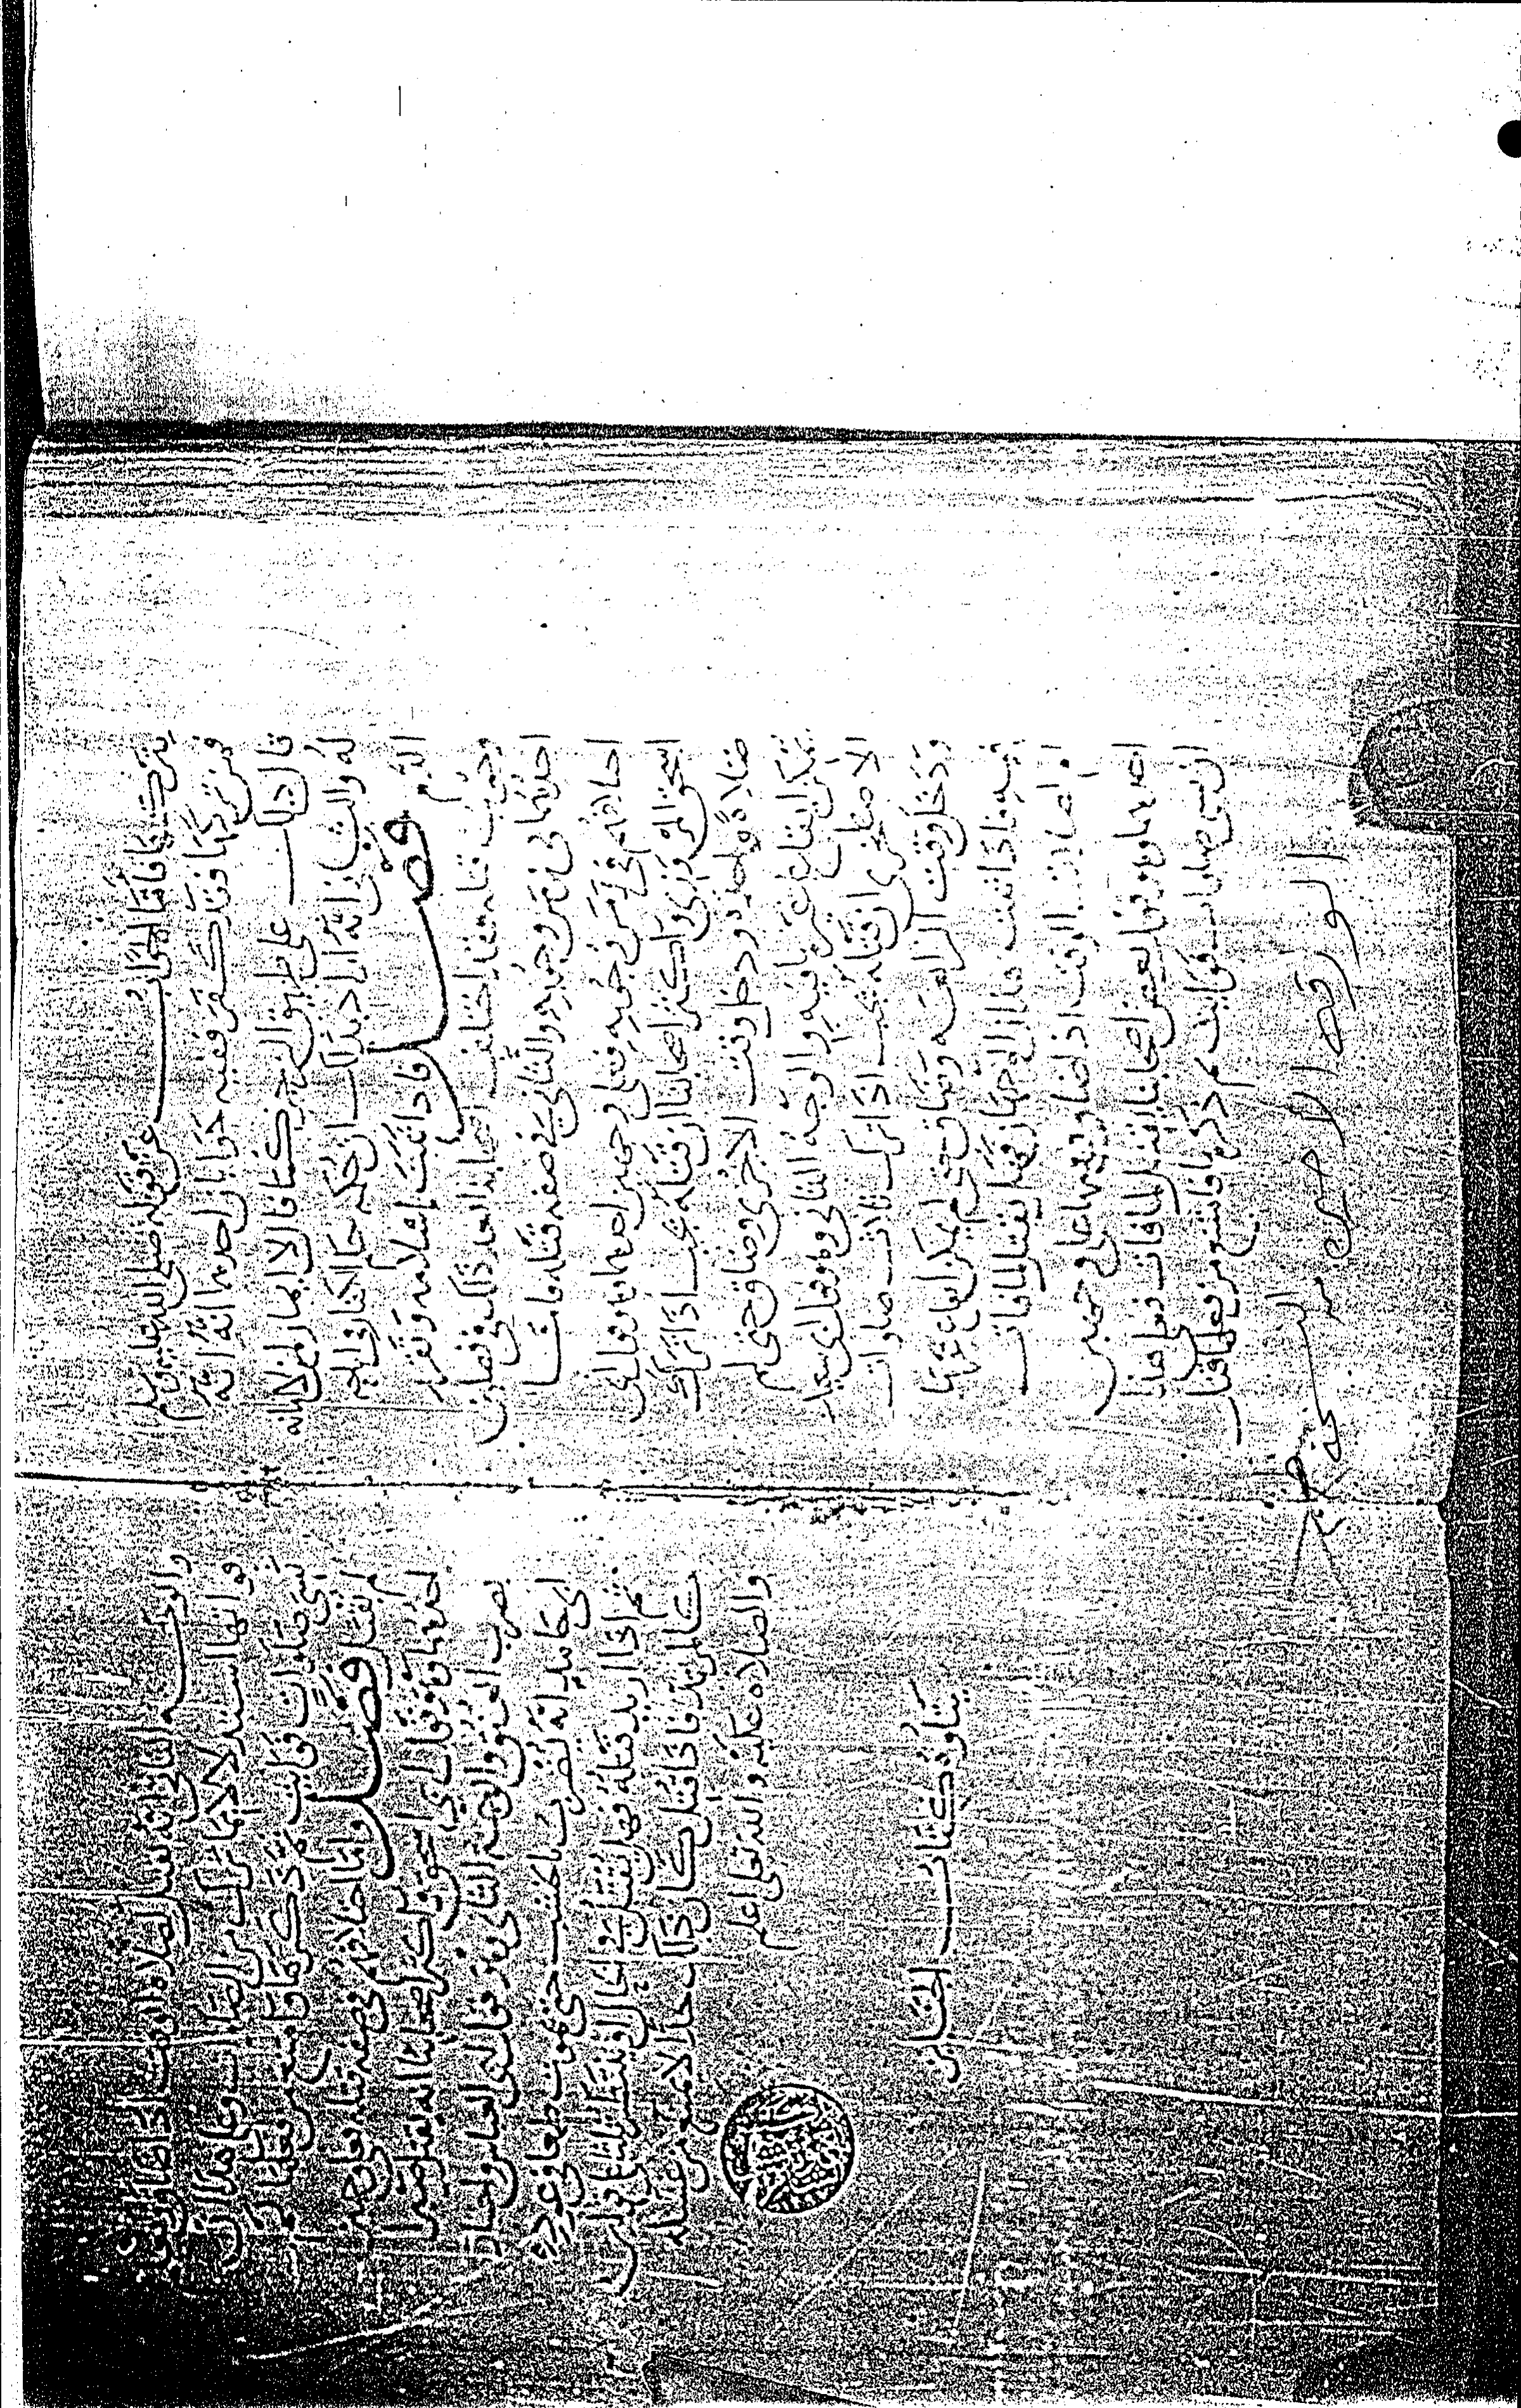 بتركها فأما الجواب عن قوله صلى الله عليه وسلم
فمن تركها فقد كفر ففيه جوابان احدهما انه انه
قال ذلك على طريق الزجر كما قال لا ايمان لمن لا امانة
له والثاني انه اراد بذلك ان حكمه حكم الكفار في
الدم فصل فاذا ثبت اسلامه وتقرر
وجوب قتله فقد اختلف اصحابنا بعد ذلك في فصلين
احدهما في زمن وجوبه والثاني في صفة قتله فاما
اختلافهم في زمن وجوبه فعلى وجهين احدهما وهو قول ابي
اسحق المروزي واكثر اصحابنا ان قتله يجب اذا ترك
صلاة واحدة ودخل وقت الاخرى وضاق حتى لم
يمكن ايقاع غيرها فيه والوجه الثاني وهو قول ابي سعيد
الاصطخري ان قتله يجب اذا ترك ثلاث صلوات
ودخل وقت الرابعة وضاق حتى لم يمكن ايقاع غيرها
فيه فاذا ثبت هذان الوجهان فهل يقتل لما فات
او لصلاة الوقت اذا ضاق وقتها على وجهين
احدهما وهو قول بعض اصحابنا يقتل لما فات فعلى هذا
ان نسي صلوات فوايت ثم ذكرها فامتنع من فعلها قتل
والوجه الثاني انه يقتل لصلاة الوقت اذا ضاق وقتها
فوايتها استدلالا بما ترك من الصلوات وعلى هذا ان
نسي صلوات فوايت ثم ذكرها فامتنع من فعلها لم
يقتل فصل واما اختلافهم في صفة قتله فعلى وجهين
احدهما وهو قول ابي اسحق واكثر اصحابنا انه يقتل صبرا
بضرب العنق والوجه الثاني وهو قول ابي العباس واختاره
ابي حامد انه يضرب بالخشب حتى يموت
ثم اذا اريد قتله فهل يقتل في الحال او ينتظر ثلاثا على قولين
كالمرتد فاذا قتل كان ذلك حدا لا يمنع من غسله
والصلاة عليه والله تعالى اعلم
يتلوه كتاب الجنائز
الورقة الاخيرة من